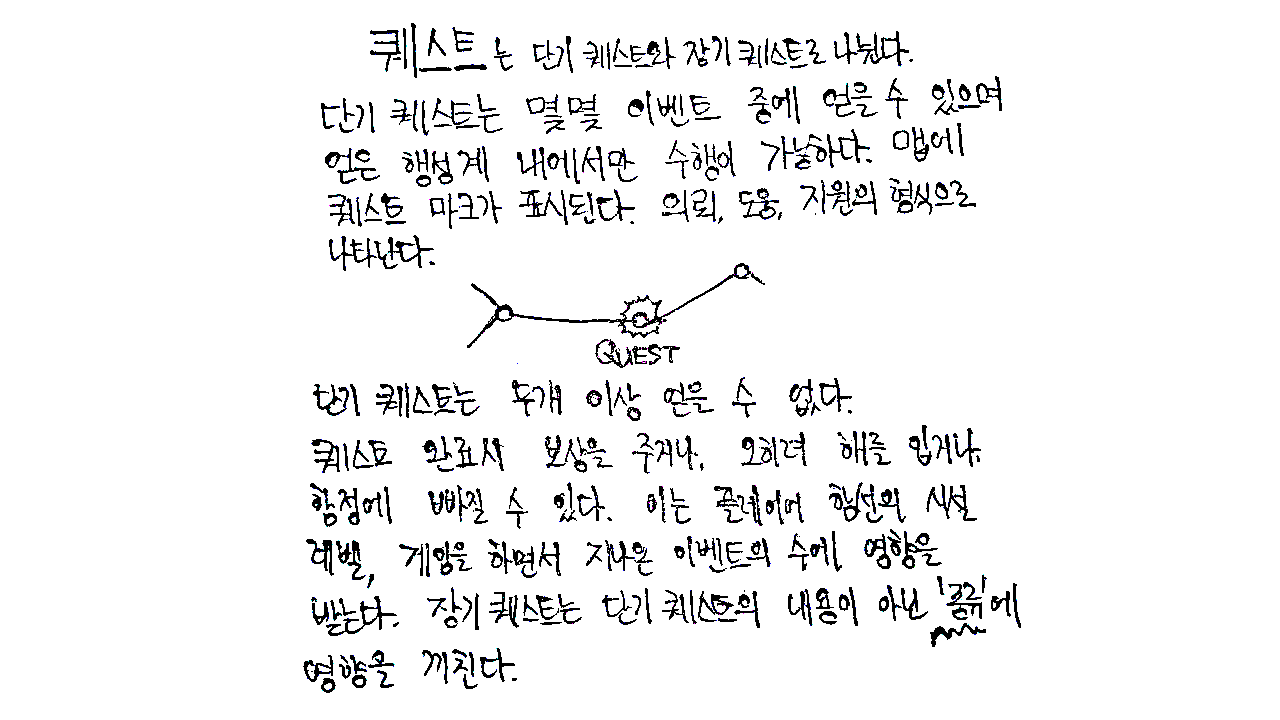 퀘스트는 단기 퀘스트와 장기 퀘스트로 나뉜다.
단기 퀘스트는 몇몇 이벤트 중에 얻을 수 있으며
얻은 행성계 내에서만 수행이 가능하다. 맵에
퀘스트 마크가 표시된다. 의뢰, 도움, 지원의 형식으로
나타난다.
QUEST
단기 퀘스트는 두개 이상 얻을 수 없다.
퀘스트 완료시 보상을 주거나, 오히려 해를 입거나,
함정에 빠질 수 있다. 이는 플레이어 함선의 시설
레벨, 게임을 하면서 지나온 이벤트의 수에 영향을
받는다. 장기 퀘스트는 단기 퀘스트의 내용이 아닌 '종류'에
영향을 끼친다.